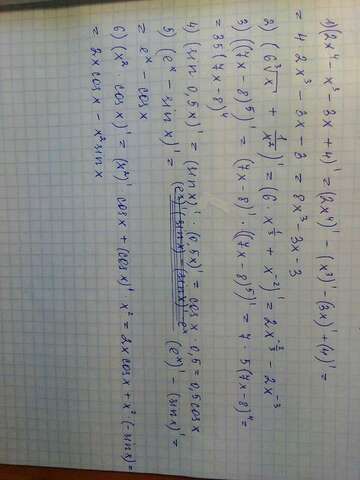 1) (2x⁴ - x³ - 3x + 4)' = (2x⁴)' - (x³)' - (3x)' + (4)' =
= 4·2x³ - 3x - 3 = 8x³ - 3x - 3
2) (6∛x + 1/x²)' = (6·x^(1/3) + x⁻²)' = 2x^(-2/3) - 2x⁻³
3) ((7x-8)⁵)' = (7x-8)' · ((7x-8)⁵)' = 7·5(7x-8)⁴ =
= 35(7x-8)⁴
4) (sin 0,5x)' = (sinx)' · (0,5x)' = cosx · 0,5 = 0,5cosx
5) (eˣ - sinx)' = (eˣ)' - (sinx)' =
= eˣ - cosx
6) (x² · cosx)' = (x²)' · cosx + (cosx)' · x² = 2x cosx + x²(-sinx) =
= 2x cosx - x² sinx